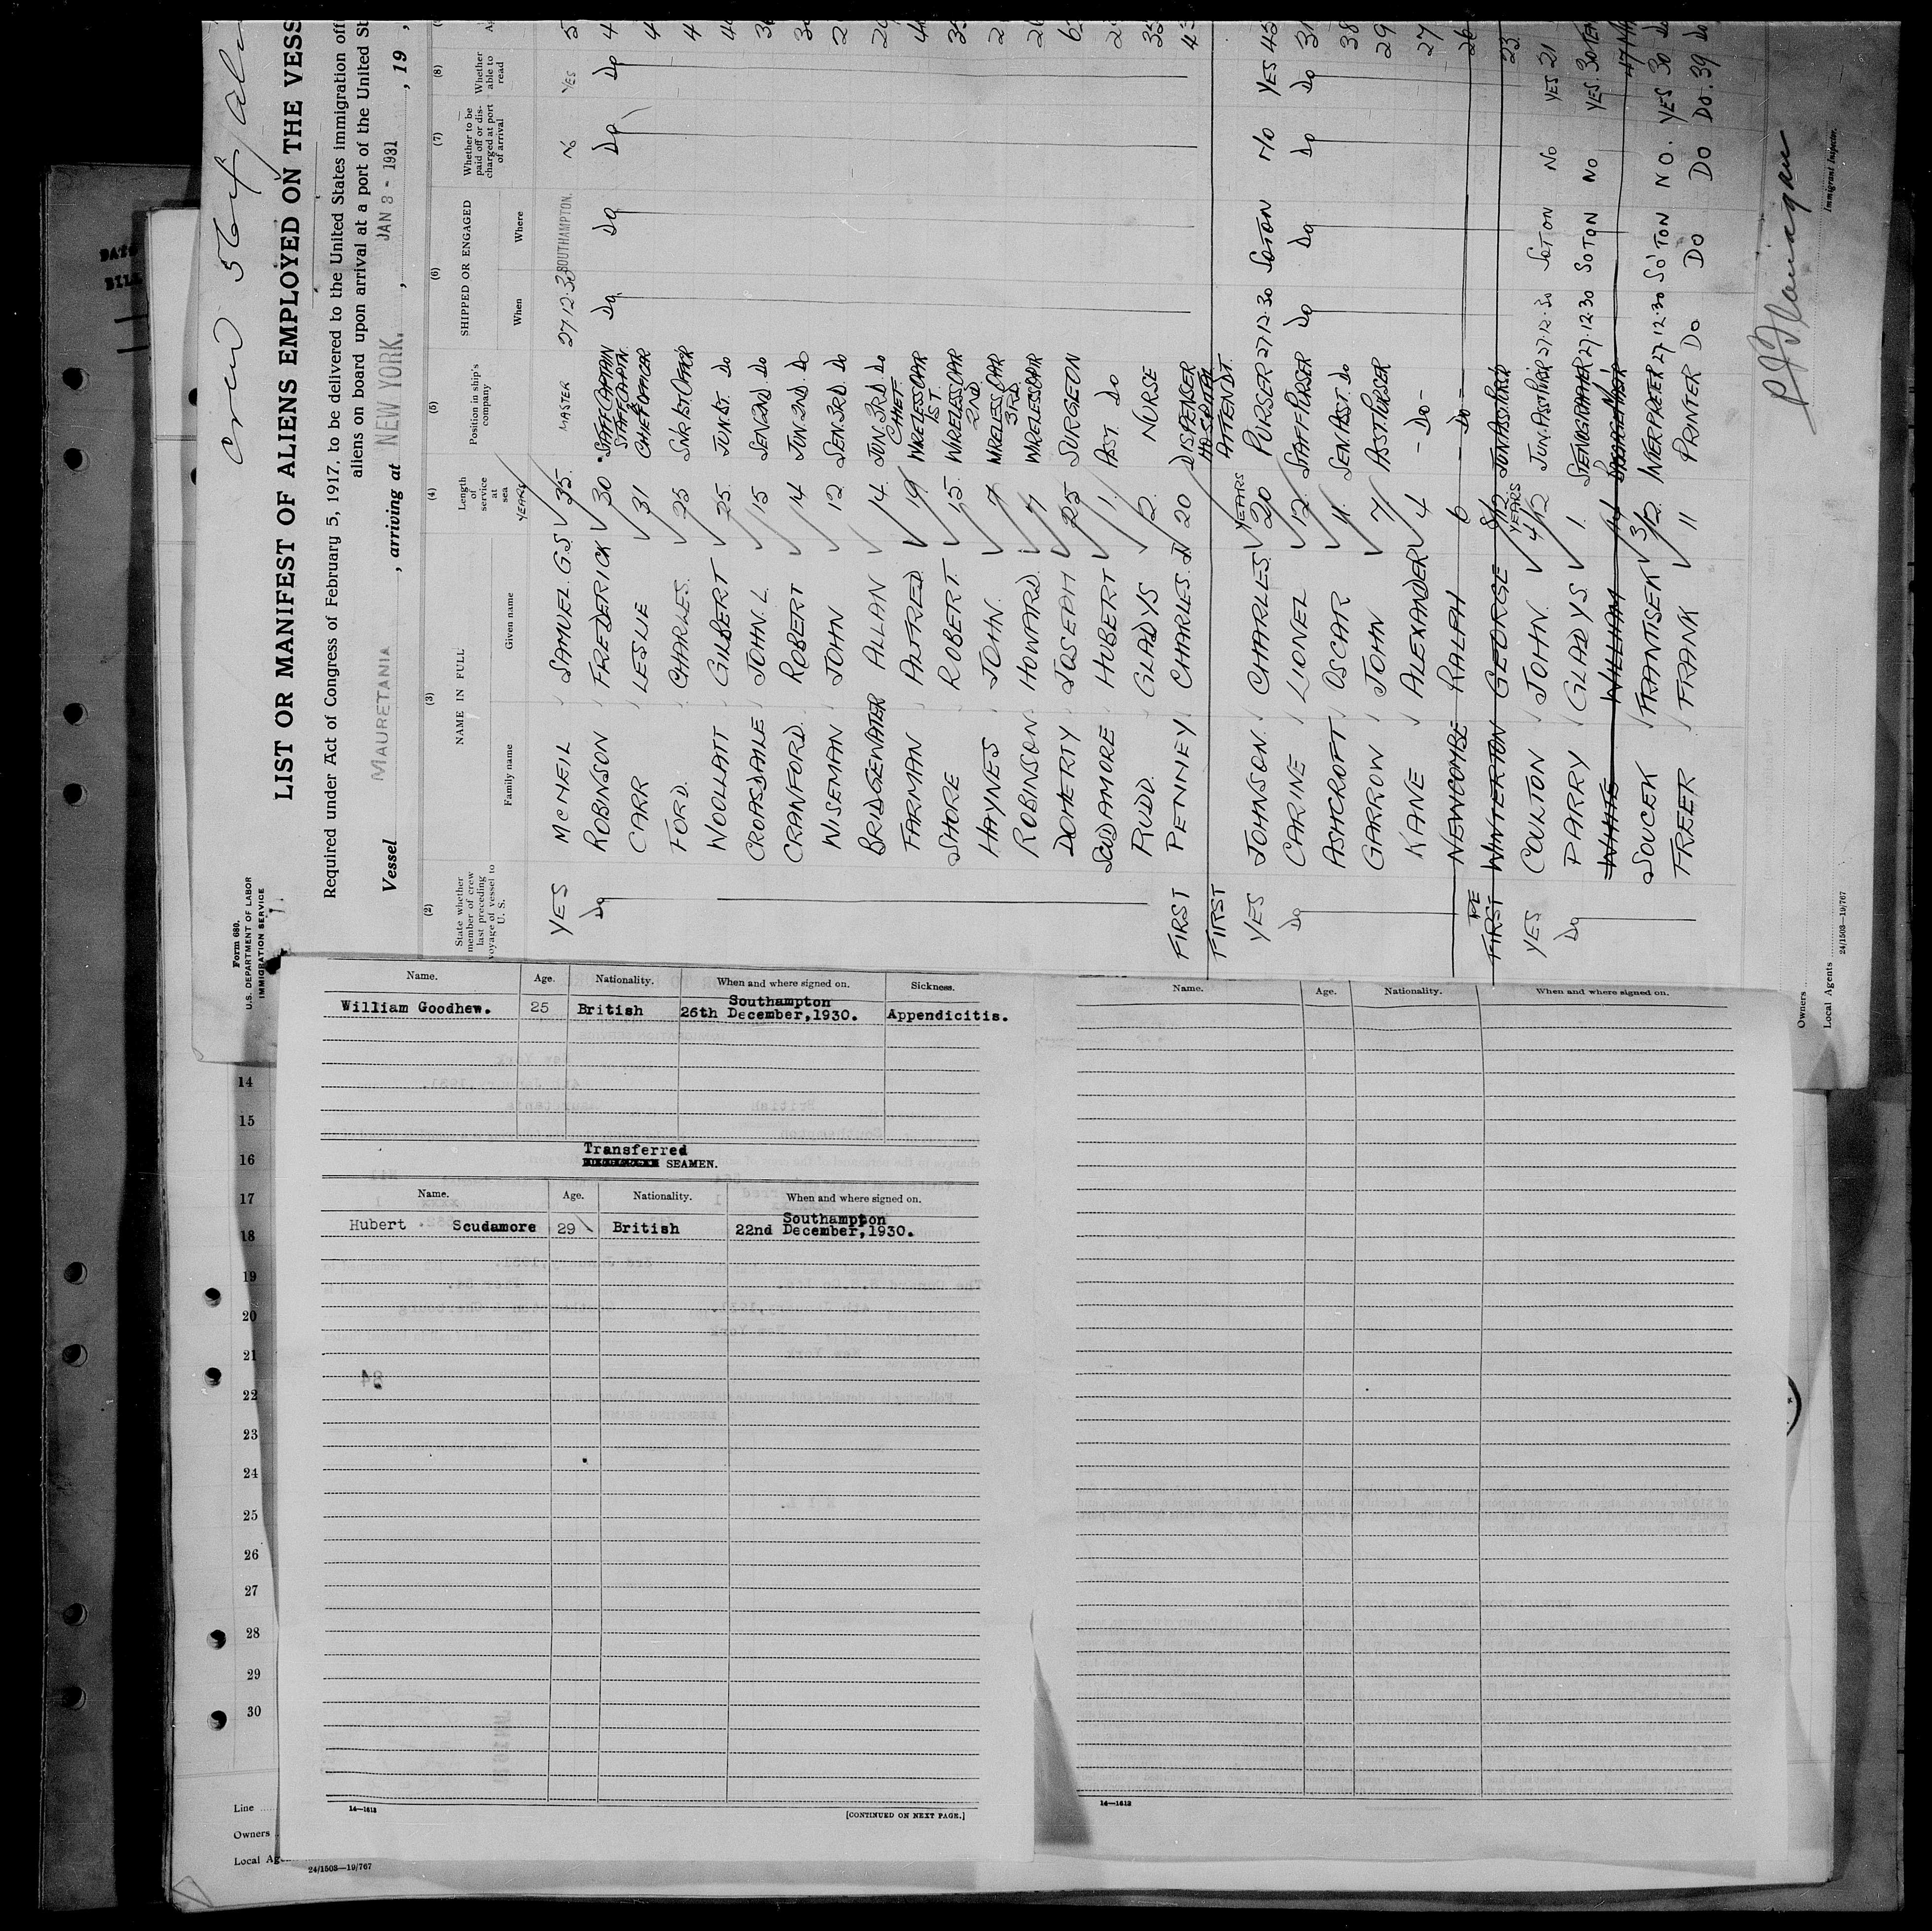 Form 680.
U.S. DEPARTMENT OF LABOR
IMMIGRATION SERVICE
1.
crew 564
LIST OR MANIFEST OF ALIENS EMPLOYED ON THE VESS
Required under Act of Congress of February 5, 1917, to be delivered to the United States immigration off
aliens on board upon arrival at a port of the United St
Vessel MAURETANIA, arriving at NEW YORK, JAN 8 - 1931, 19
(2) (3) (4) (5) (6) (7) (8)
State whether member of crew last preceding voyage of vessel to U. S.
NAME IN FULL
Family name Given name
Length of service at sea
YEARS
Position in ship's company
SHIPPED OR ENGAGED
When Where
Whether to be paid off or discharged at port of arrival
Whether able to read
YES McNEIL SAMUEL. G.S 35. MASTER 27.12.30 SOUTHAMPTON. No YES
Do ROBINSON FREDERICK 30 STAFF CAPTAIN Do Do Do Do
CARR LESLIE 31 CHIEF OFFICER
FORD. CHARLES. 25 SNR 1ST OFFICR
WOOLLATT GILBERT 25. JUN. 1ST. Do
CROASDALE JOHN. L. 15 SEN 2ND. Do
CRANFORD. ROBERT 14 JUN. 2ND. Do
WISEMAN JOHN 12 SEN. 3RD. Do
BRIDGEWATER ALLAN 14. JUN. 3RD Do
FARMAN ALFRED. 19 CHIEF. WIRELESS OPR
SHORE ROBERT. 15. 1ST. WIRELESS OPR
HAYNES JOHN. 7 2ND. WIRELESS OPR
ROBINSON HOWARD. 7 3RD. WIRELESS OPR
DOHERTY JOSEPH 25 SURGEON
SCUDAMORE HUBERT 1. ASST. Do
RUDD. GLADYS 2. NURSE
FIRST PENNEY CHARLES. 20 DISPENSER
FIRST HOSPITAL ATTENDT.
YES JOHNSON. CHARLES. YEARS 20 PURSER 27.12.30 SOTON No YES 43
Do CARINE LIONEL 12 STAFF PURSER Do Do Do Do 31
ASHCROFT OSCAR 11. SEN. ASST. Do 38
GARROW JOHN 7 ASST. PURSER 29
KANE ALEXANDER 4 - Do - 27
NEWCOMBE RALPH 6 - Do - 26
FIRST WINTERTON GEORGE 8/12 JUN. ASS. PURSR 23.
YES COULTON JOHN. YEARS 4/12 JUN. ASS. PURSR 27.12.30 SOTON No YES 21
Do PARRY GLADYS 1. STENOGRAPHER 27.12.30 SOTON No YES. 30
WHITE WILLIAM 14 47
SOUCEK FRANTISEK 3/12. INTERPRETER 27.12.30 SO'TON NO. YES 30
FREER FRANK 11 PRINTER Do Do Do Do. 39
Immigrant Inspector.
Owners
Local Agents
24/1503—19/767
Name. Age. Nationality. When and where signed on. Sickness.
William Goodhew. 25 British Southampton 26th December, 1930. Appendicitis.
Transferred
SEAMEN.
Name. Age. Nationality. When and where signed on.
Hubert Scudamore 29 British Southampton 22nd December, 1930.
14—1613
[CONTINUED ON NEXT PAGE.]
Name. Age. Nationality. When and where signed on.
14—1613
14
15
16
17
18
19
20
21
22
23
24
25
26
27
28
29
30
Line
Owners
Local Ag
24/1503—19/767